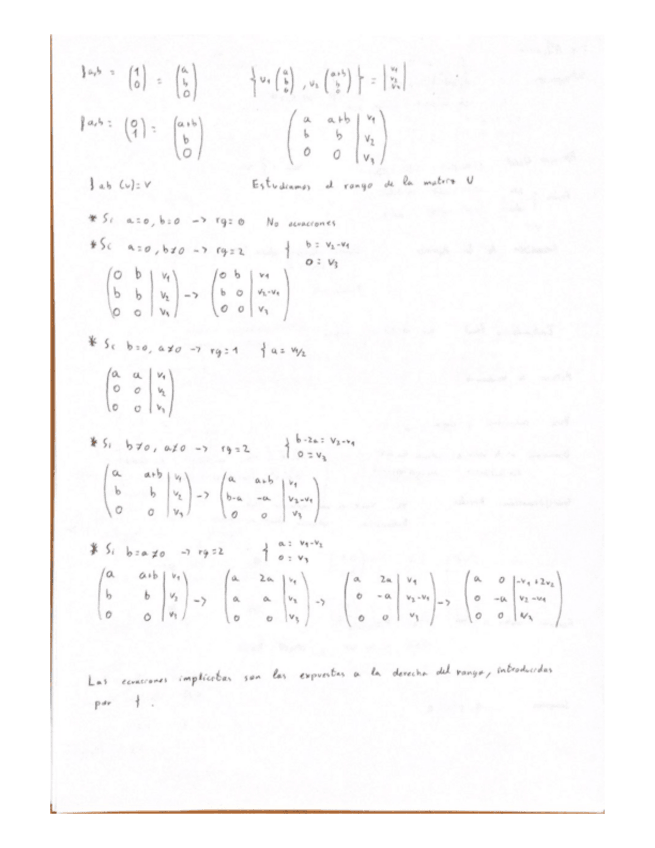 f a,b = (1 0) = (a b 0) { v₁ (a b 0) , v₂ (a+b b 0) } = | v₁ v₂ v₃ |
f a,b = (0 1) = (a+b b 0) ( a a+b | v₁
b b | v₂
0 0 | v₃ )
f ab (v) = v Estudiamos el rango de la matriz U
* Si a=0, b=0 -> rg=0 No ecuaciones
* Si a=0, b≠0 -> rg=2 { b = v₂-v₁
0 = v₃
( 0 b | v₁ ) ( 0 b | v₁ )
( b b | v₂ ) -> ( b 0 | v₂-v₁ )
( 0 0 | v₃ ) ( 0 0 | v₃ )
* Si b=0, a≠0 -> rg=1 { a = v₁/2
( a a | v₁ )
( 0 0 | v₂ )
( 0 0 | v₃ )
* Si b≠0, a≠0 -> rg=2 { b-2a = v₂-v₁
0 = v₃
( a a+b | v₁ ) ( a a+b | v₁ )
( b b | v₂ ) -> ( b-a -a | v₂-v₁ )
( 0 0 | v₃ ) ( 0 0 | v₃ )
* Si b=a≠0 -> rg=2 { a = v₁-v₂
0 = v₃
( a a+b | v₁ ) ( a 2a | v₁ ) ( a 2a | v₁ ) ( a 0 | -v₁+2v₂ )
( b b | v₂ ) -> ( a a | v₂ ) -> ( 0 -a | v₂-v₁ ) -> ( 0 -a | v₂-v₁ )
( 0 0 | v₃ ) ( 0 0 | v₃ ) ( 0 0 | v₃ ) ( 0 0 | v₃ )
Las ecuaciones implícitas son las expuestas a la derecha del rango, introducidas
por { .